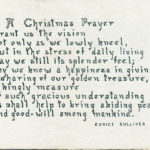 A Christmas Prayer
rant us the vision
ot only as we lowly kneel,
ut in the stress of daily living
ay we still its splendor feel;
ay we know a happiness in giving
sharing of our golden treasure,
hingly measure
such gracious understanding
s shall help to bring abiding pea
nd good-will among mankind.
EUNICE GULLIVER